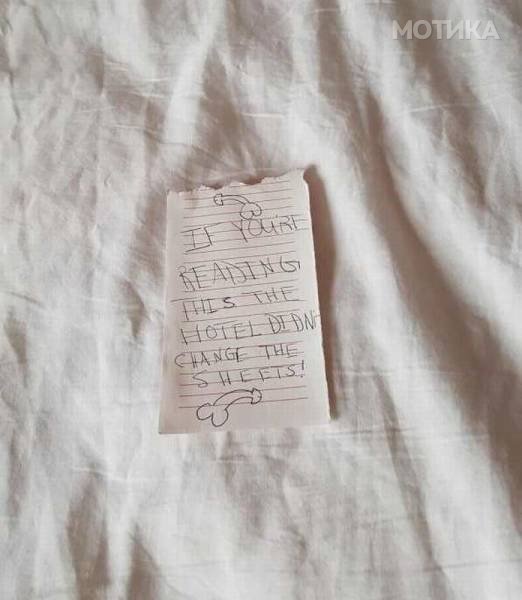 МОТИКА
IF YOU'RE
READING
THIS THE
HOTEL DIDN'T
CHANGE THE
SHEETS!